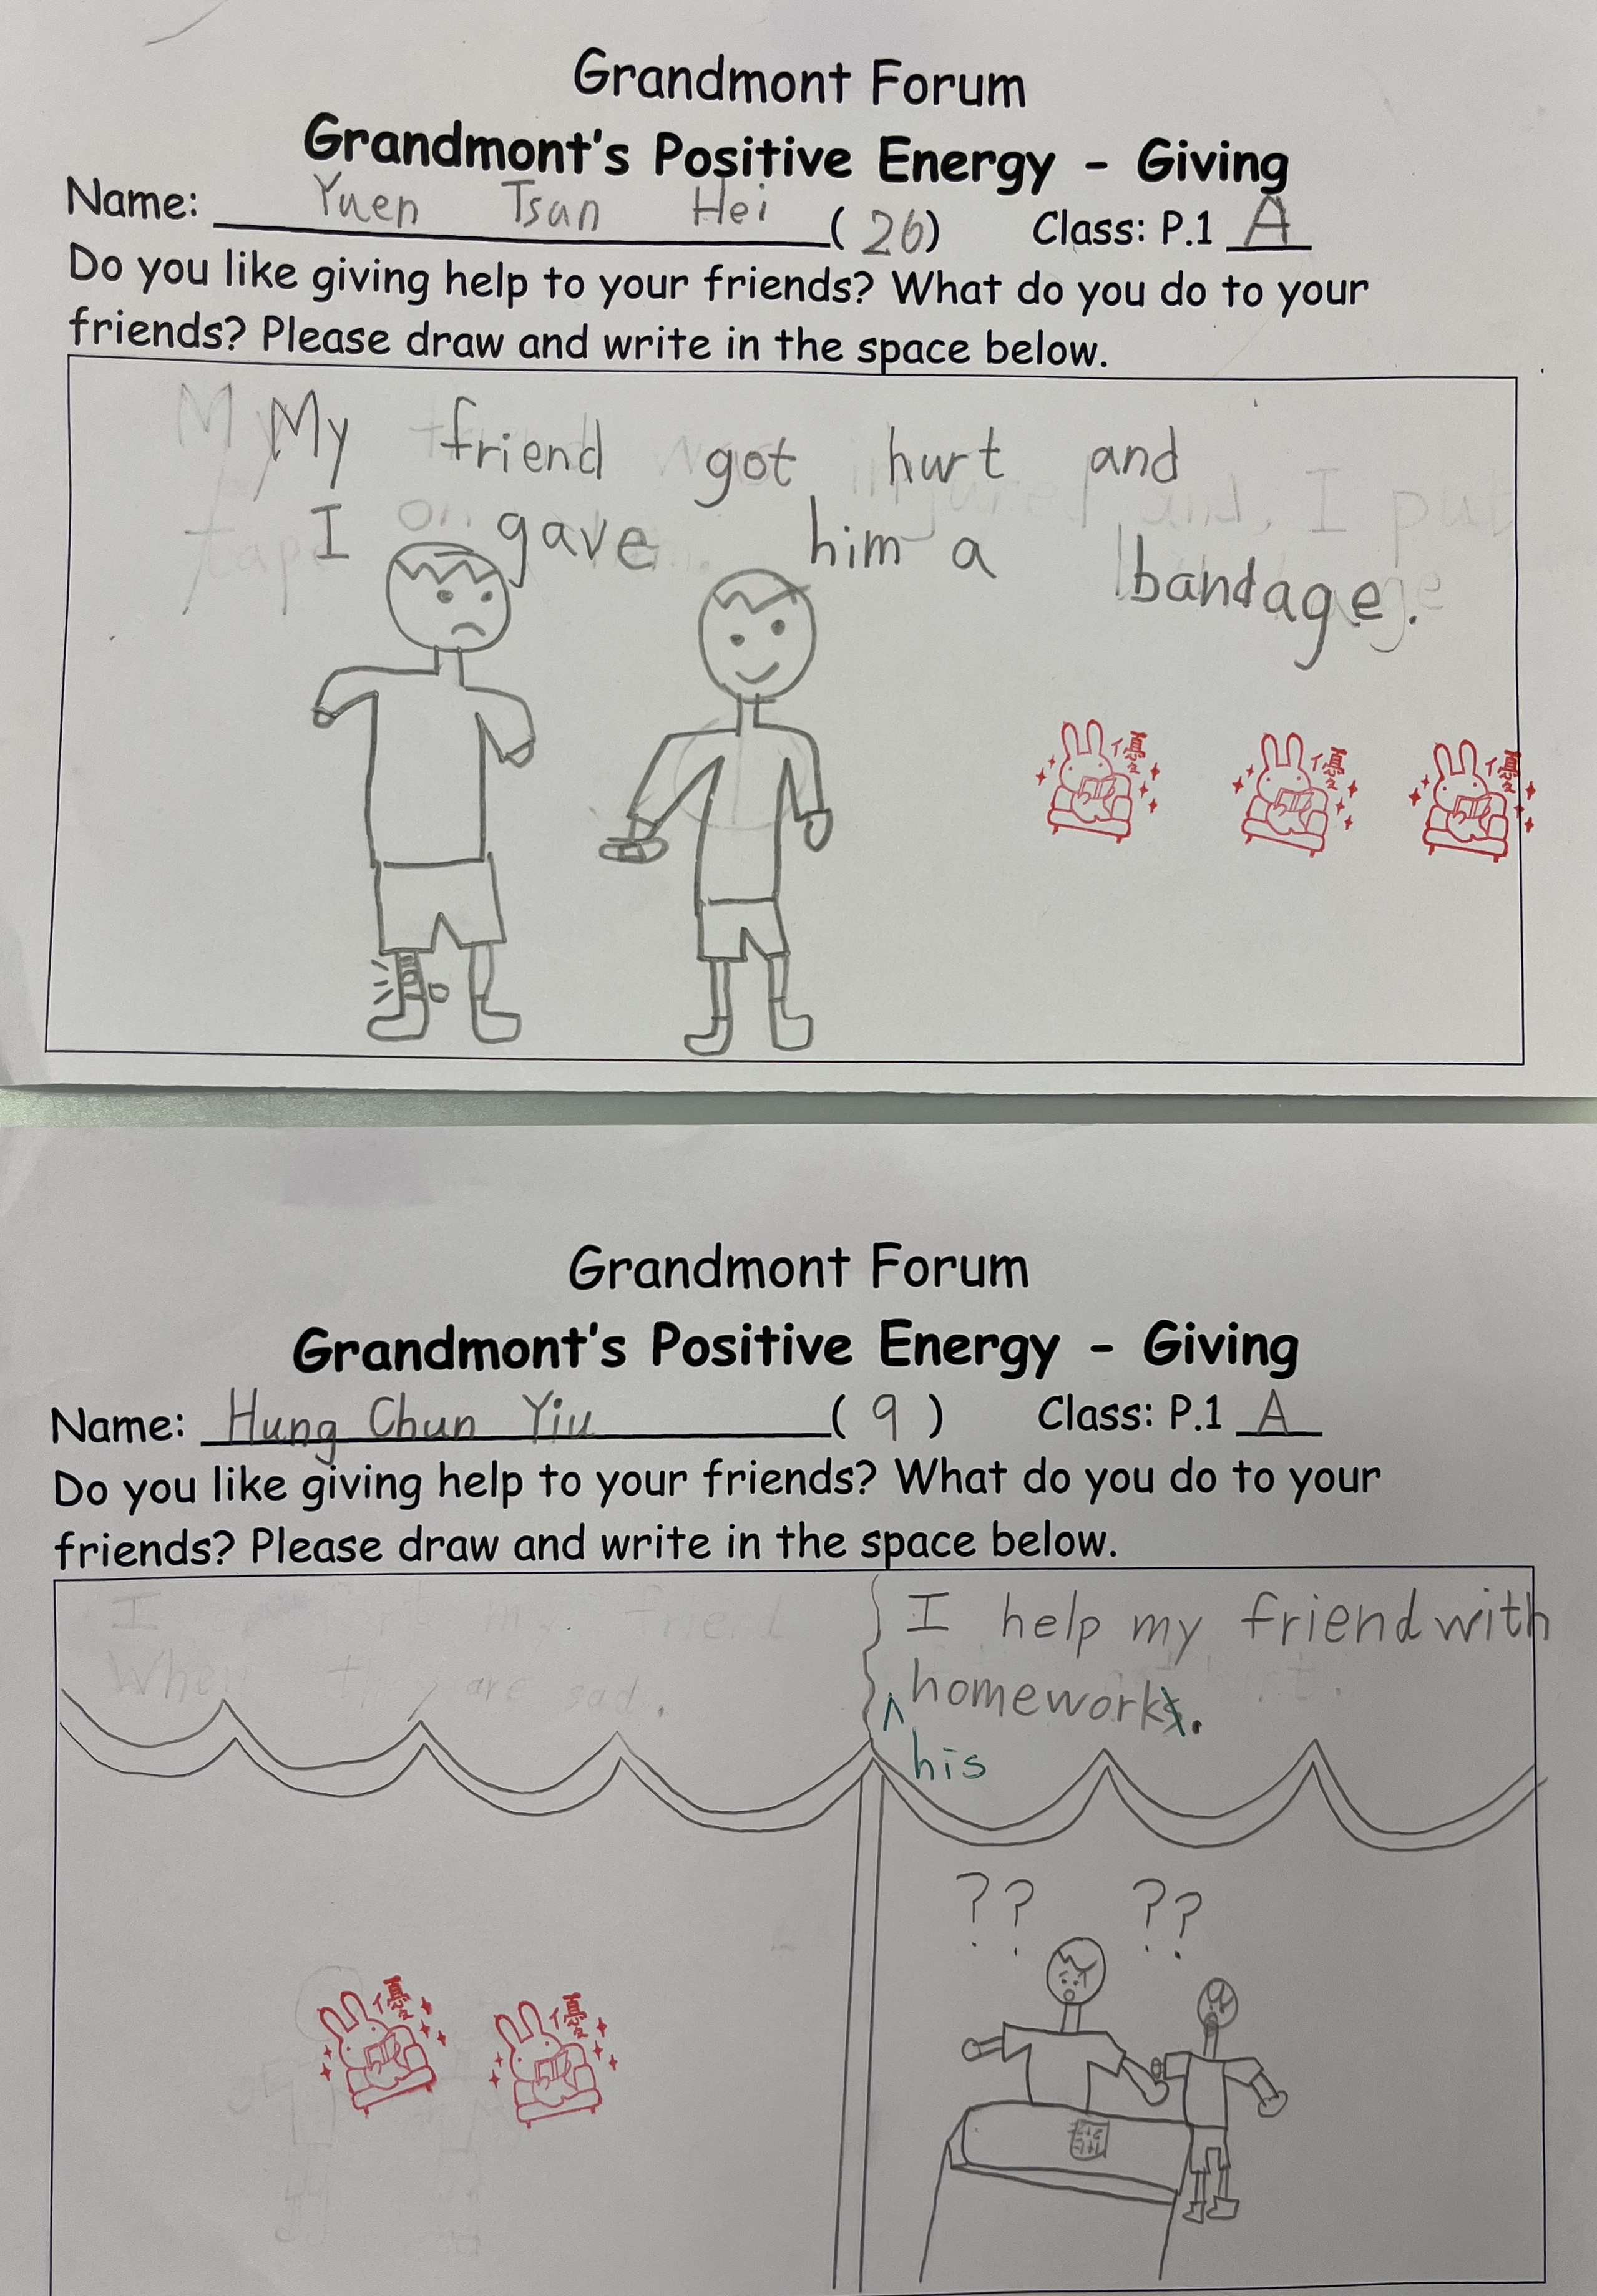 Grandmont Forum
Grandmont's Positive Energy - Giving
Name: Yuen Tsan Hei (26) Class: P.1 A
Do you like giving help to your friends? What do you do to your
friends? Please draw and write in the space below.
My friend got hurt and
I gave him a bandage.
優 優 優
Grandmont Forum
Grandmont's Positive Energy - Giving
Name: Hung Chun Yiu (9) Class: P.1 A
Do you like giving help to your friends? What do you do to your
friends? Please draw and write in the space below.
I help my friend with
homeworks.
his
?? ??
優 優